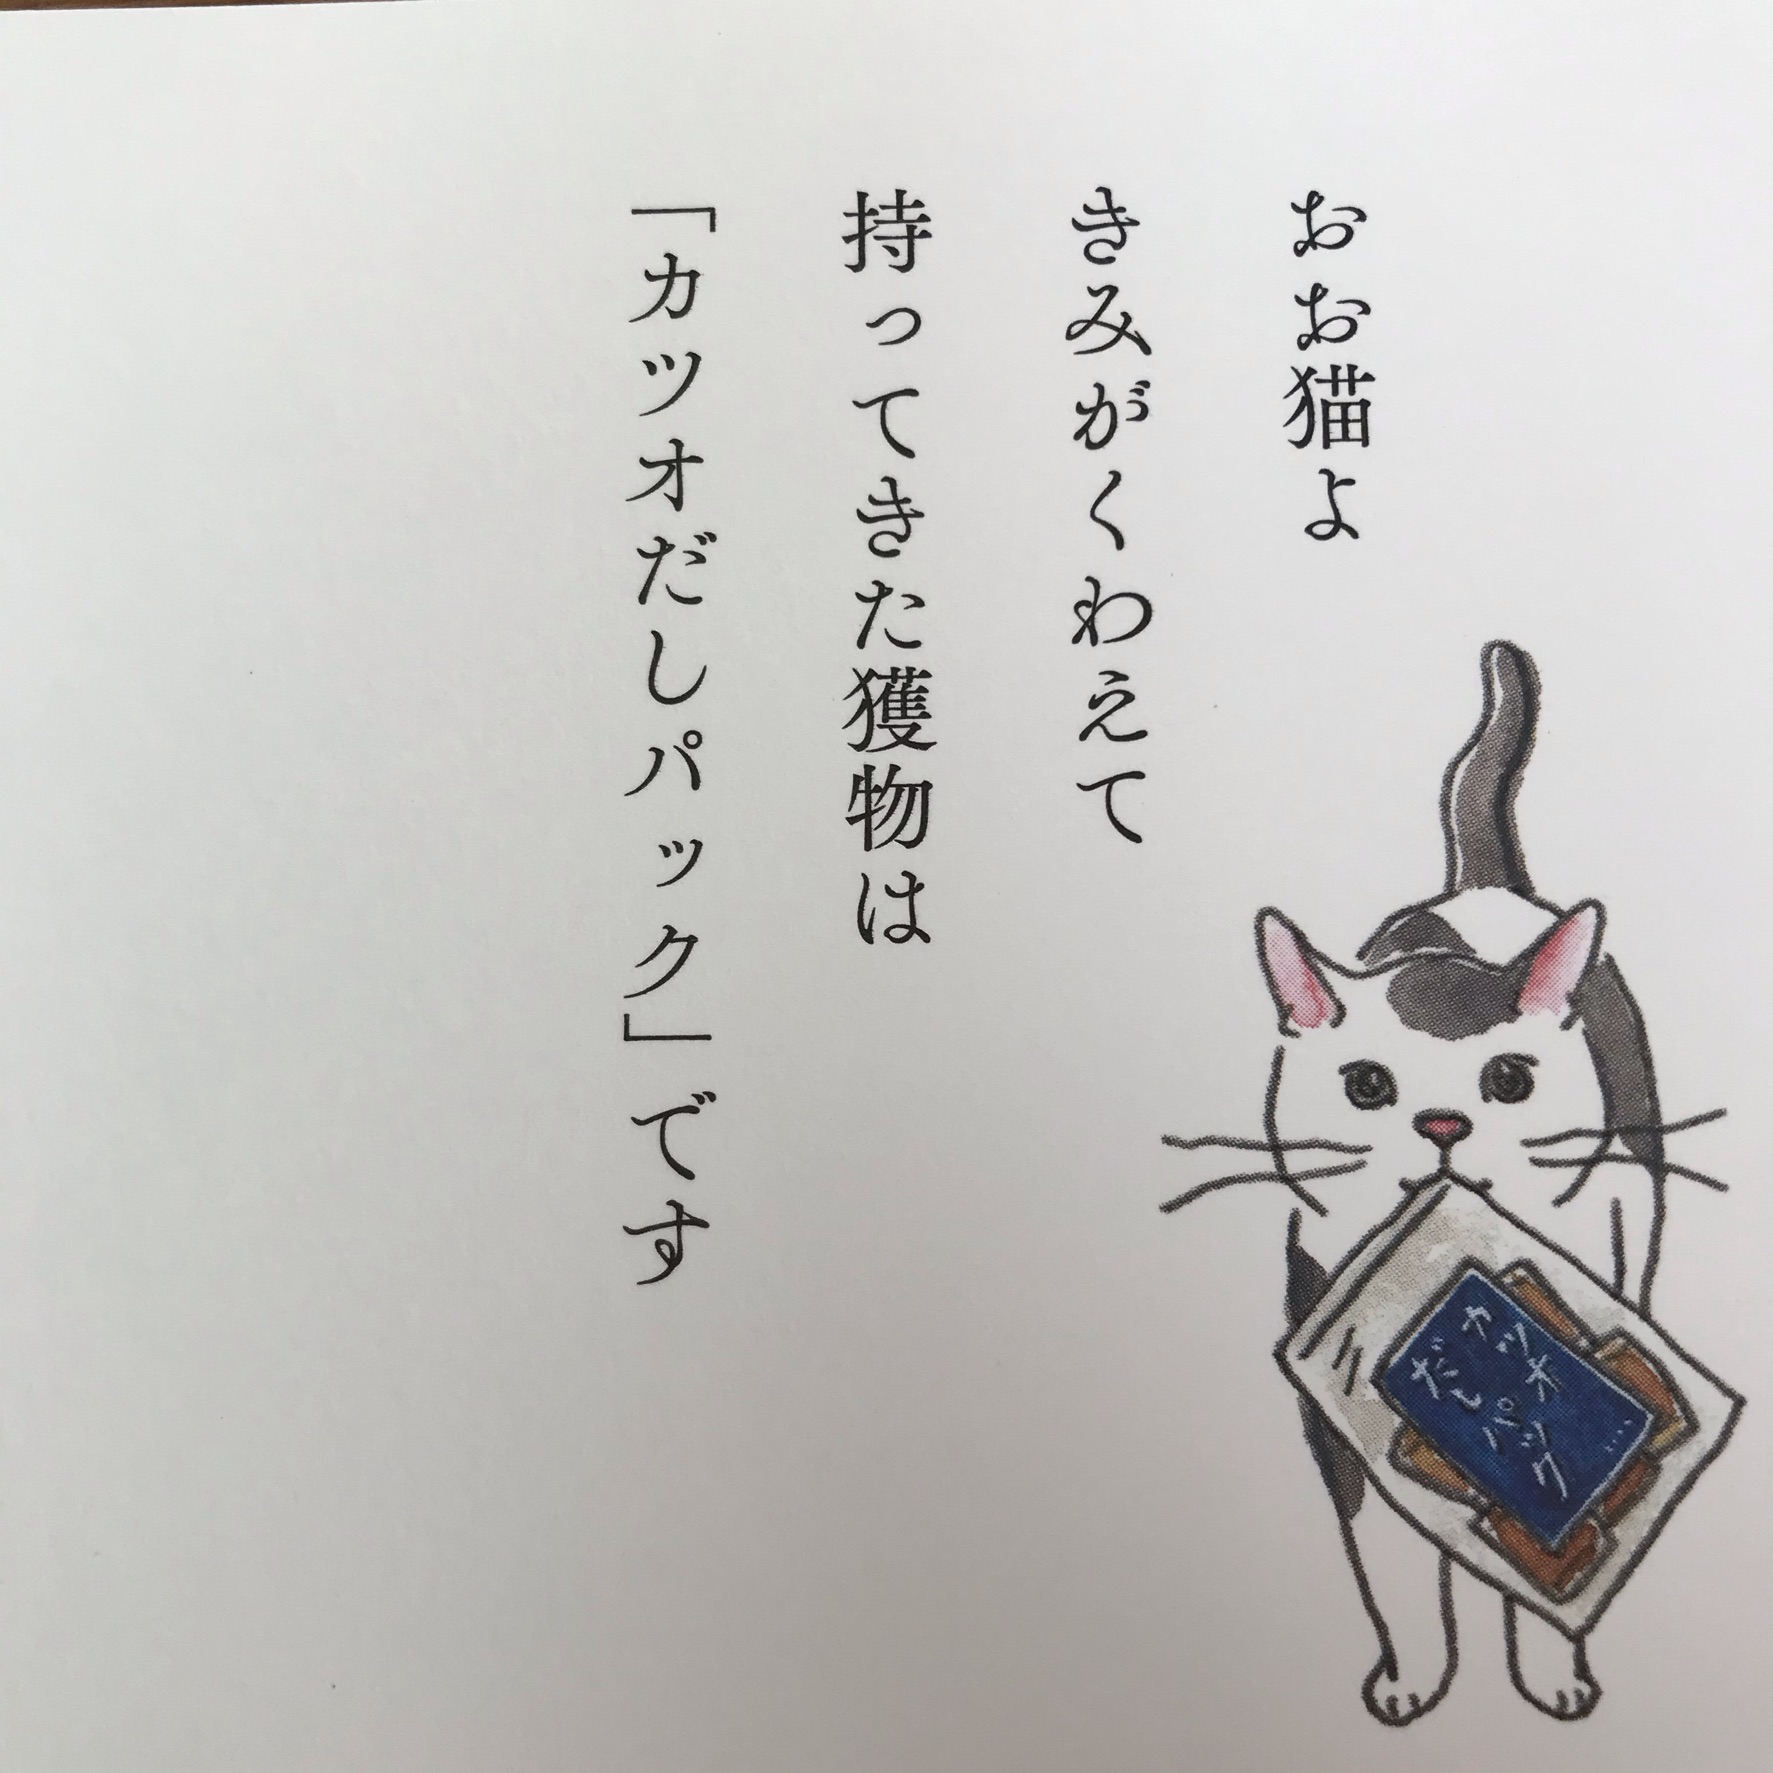 おお猫よ
きみがくわえて
持ってきた獲物は
「カツオだしパック」です
カツオ
だしパック